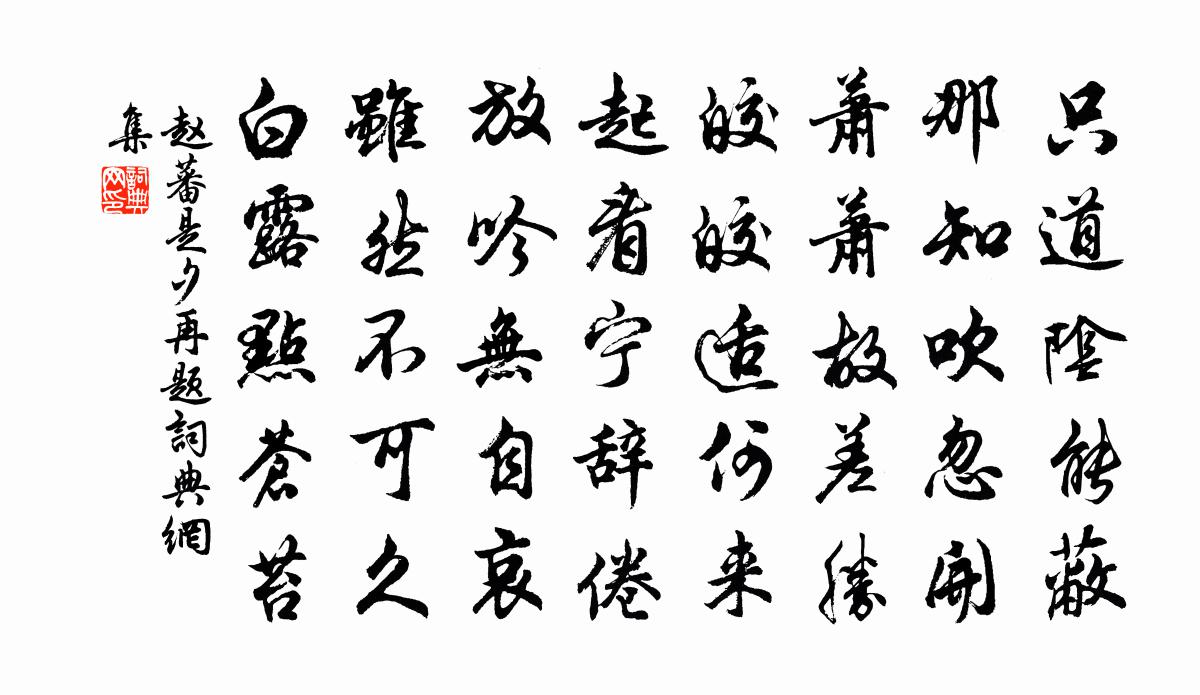 只道陰能蔽
那知吹忽開
蕭蕭故差勝
皎皎适何来
起看宁辞倦
放吟無自哀
雖然不可久
白露點蒼苔
赵蕃是夕再题詞典網
集
詞典
网印